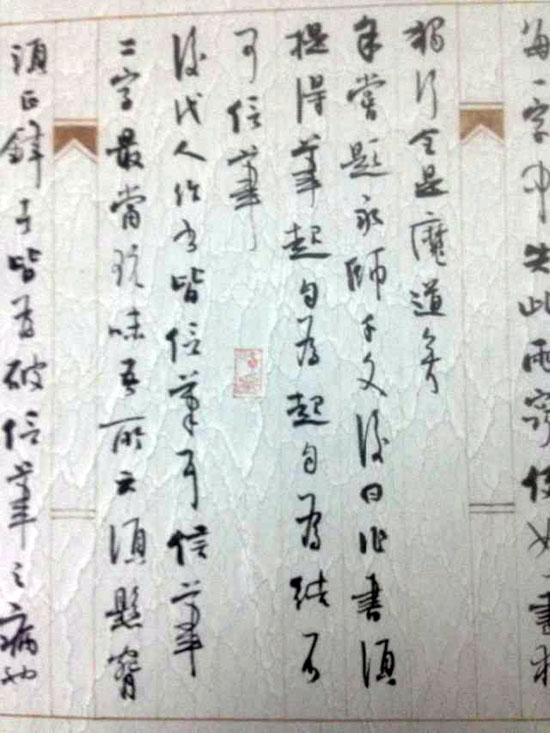 每一字中失此兩竅便如晝
獨行全是魔道矣
余嘗題永師千文後曰作書須
提得筆起自為起自為結不
可信筆
後代人作書皆信筆耳信筆
二字最當玩味吾所云須懸腕
須正鋒者皆為破信筆之病也